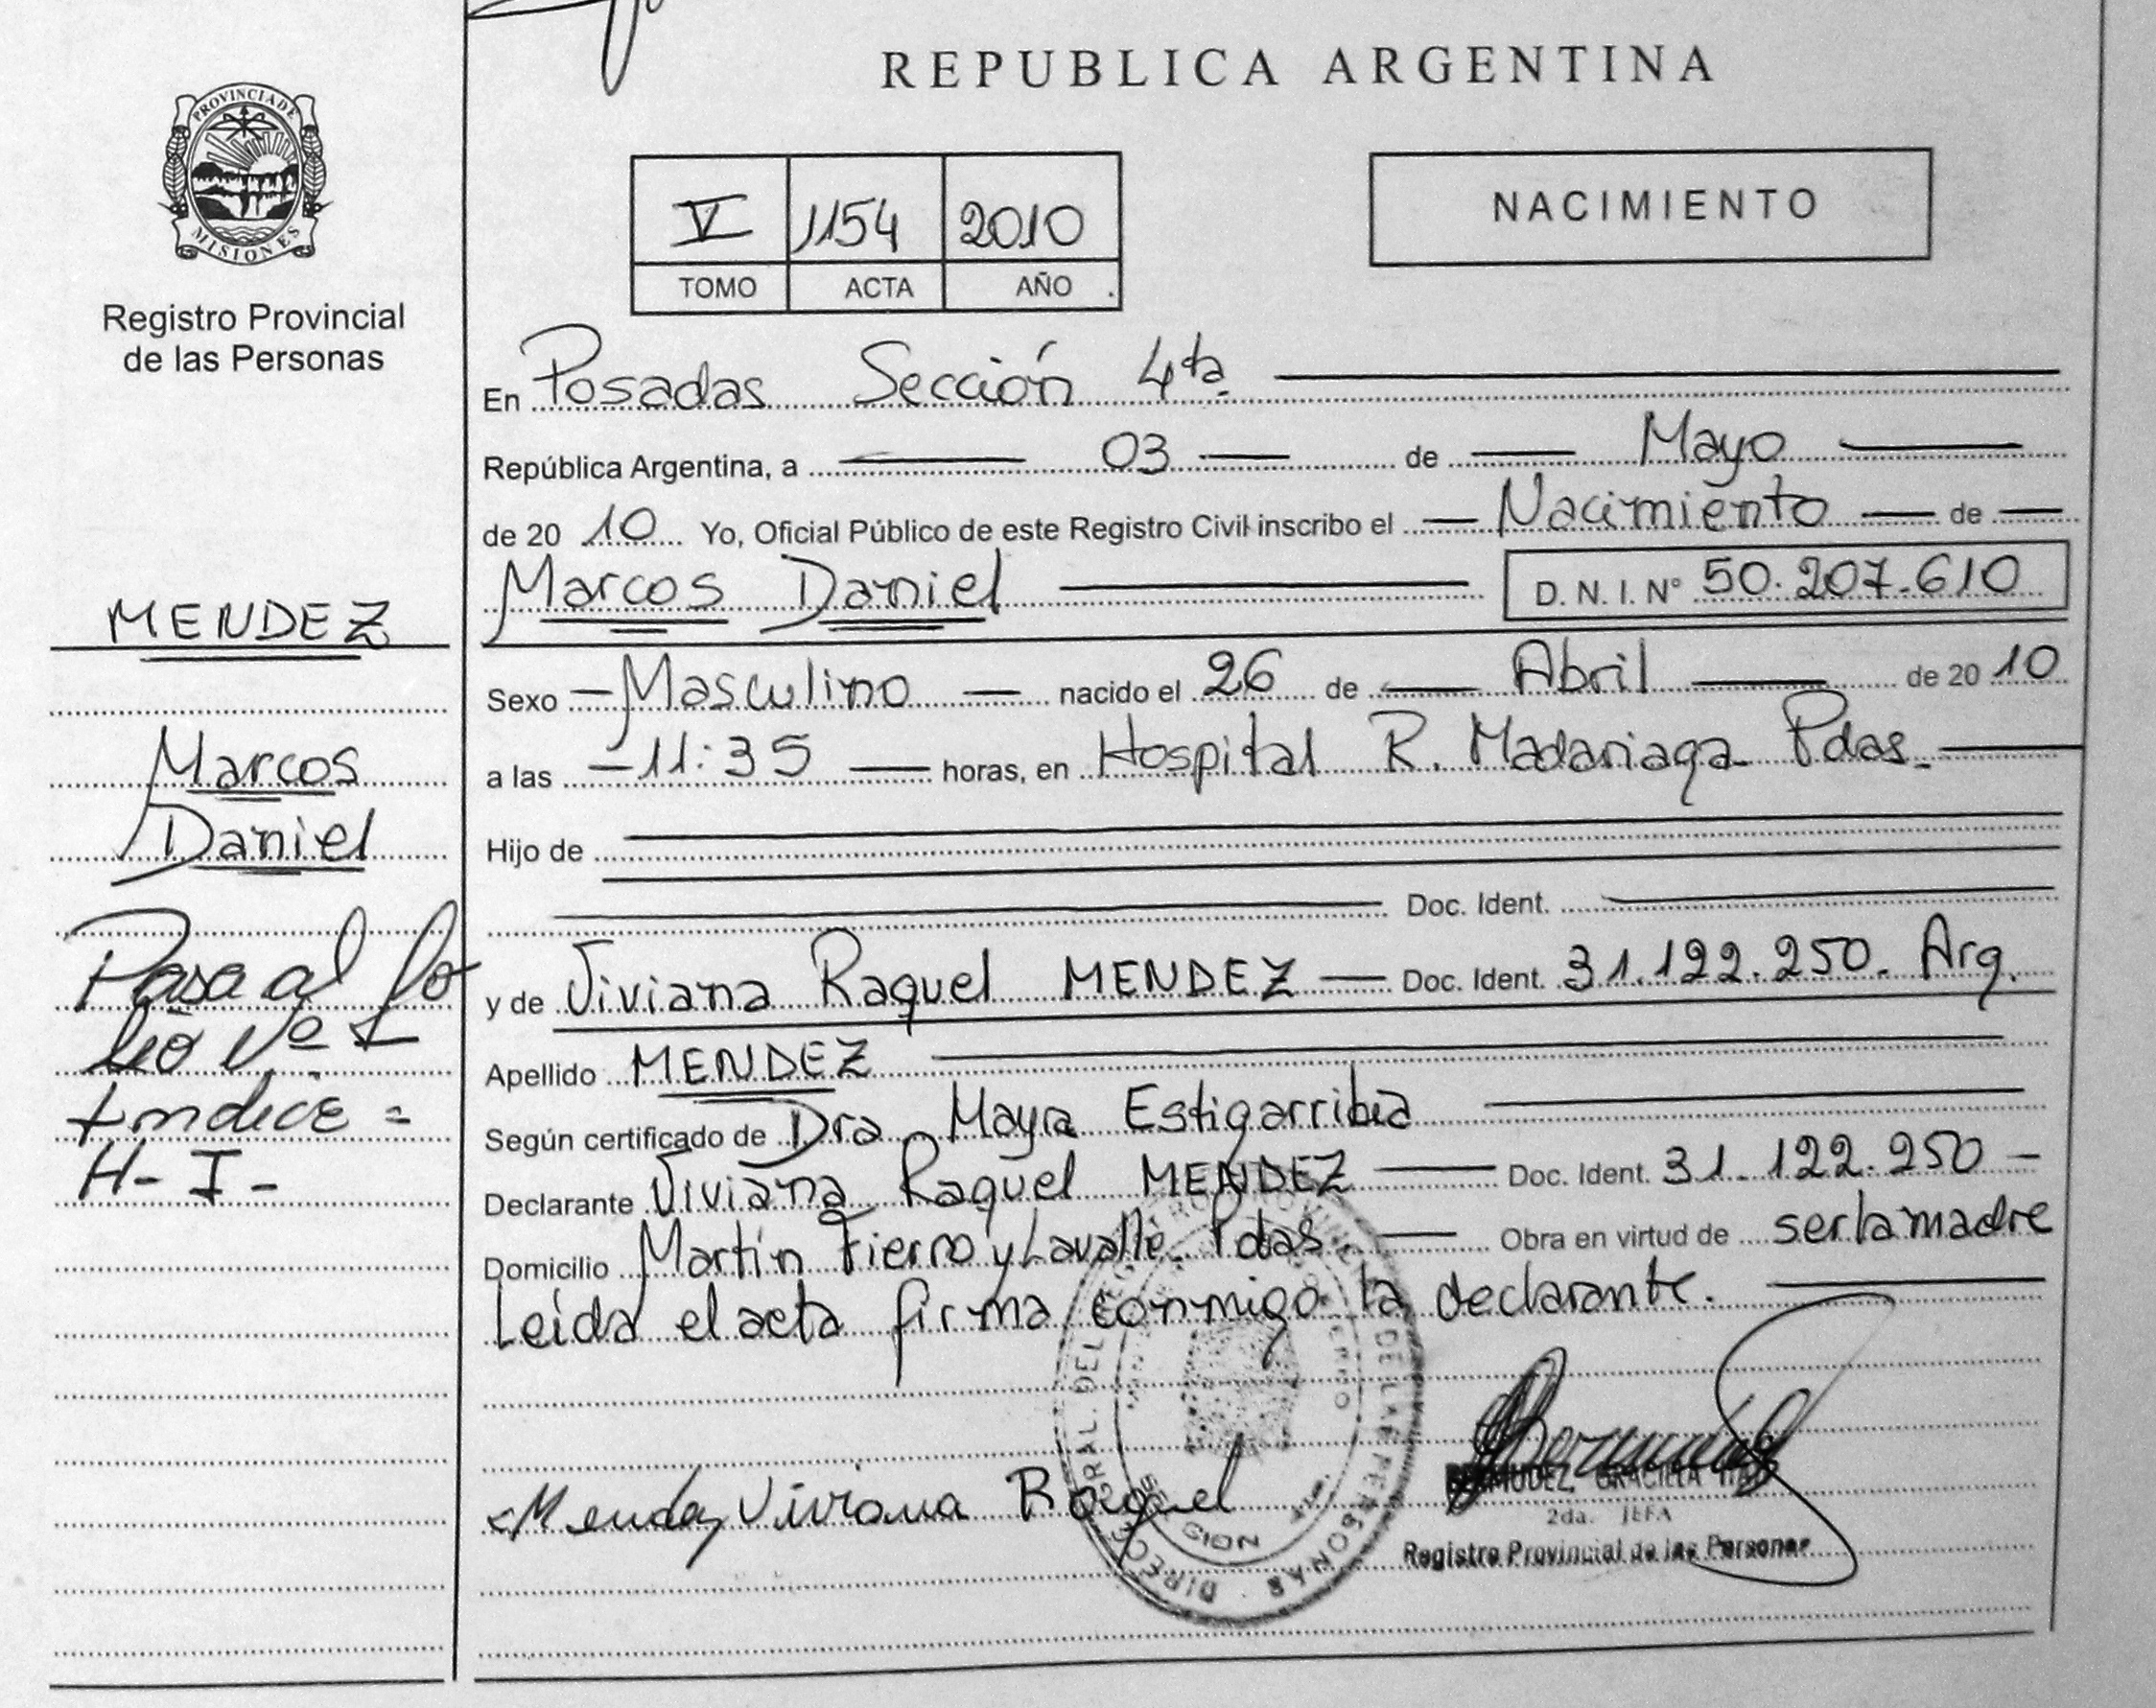 REPUBLICA ARGENTINA
PROVINCIA DE
MISIONES
Registro Provincial
de las Personas
V 1154 2010
TOMO ACTA AÑO
NACIMIENTO
En Posadas Sección 4ta
República Argentina, a 03 de Mayo
de 20 10 Yo, Oficial Público de este Registro Civil inscribo el Nacimiento de
Marcos Daniel D. N. I. N° 50.207.610
Sexo Masculino nacido el 26 de Abril de 20 10
a las 11:35 horas, en Hospital R. Madariaga Pdas.
Hijo de
Doc. Ident.
y de Viviana Raquel MENDEZ Doc. Ident. 31.122.250. Arg.
Apellido MENDEZ
Según certificado de Dra Mayra Estigarribia
Declarante Viviana Raquel MENDEZ Doc. Ident. 31.122.250
Domicilio Martín Fierro y Lavalle. Pdas Obra en virtud de ser la madre
Leída el acta firma conmigo la declarante.
MENDEZ
Marcos
Daniel
Pasa al fo
lio Nº 1
Indice =
H- I-
Mendez Viviana Raquel
BERMUDEZ, GRACIELA
2da. JEFA
Registro Provincial de las Personas